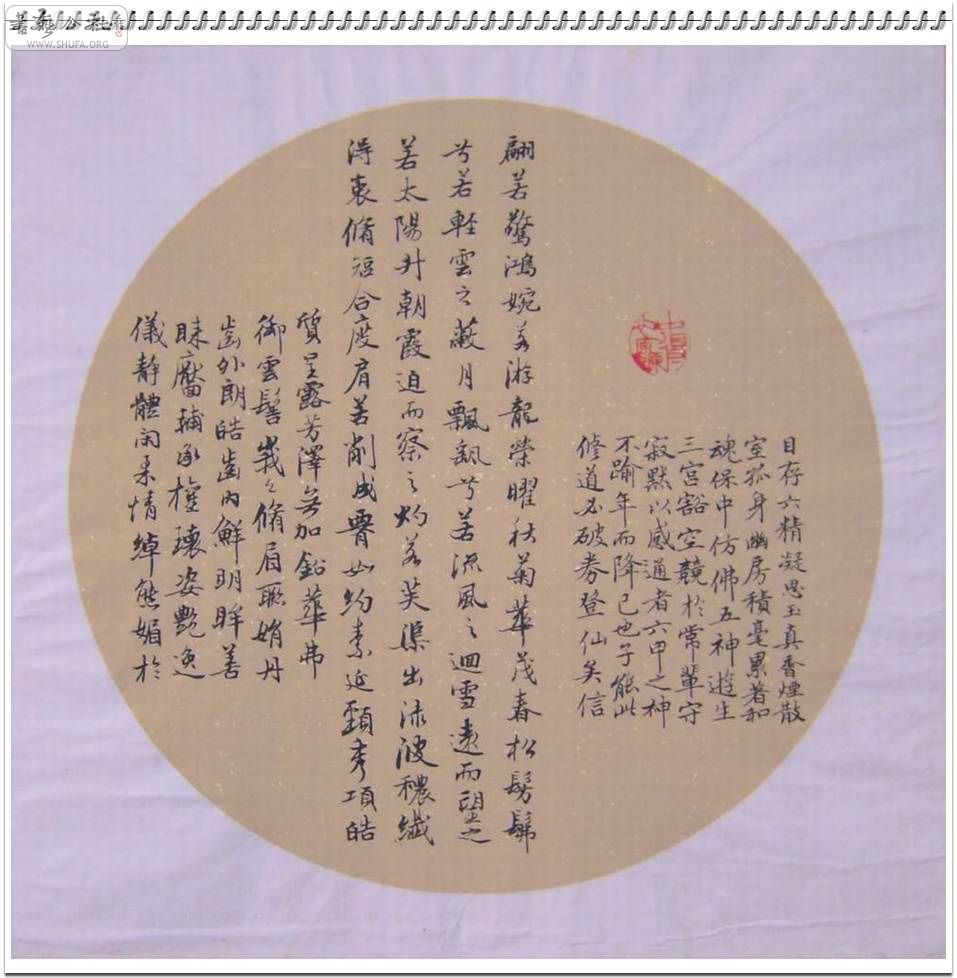 書藝公社
WWW.SHUFA.ORG
目存六精凝思玉真香煙散
室孤身幽房積毫累著和
魂保中仿佛五神遊生
三宮豁空競於常輩守
寂默以感通者六甲之神
不踰年而降已也子能此
修道必破券登仙矣信
翩若驚鴻婉若游龍榮曜秋菊華茂春松髣髴
兮若軽雲之蔽月飄飖兮若流風之迴雪遠而望之
若太陽升朝霞迫而察之灼若芙渠出淥波穠纖
得衷脩短合度肩若削成腰如約素延頸秀項皓
質呈露芳澤無加鉛華弗
御雲髻峩々脩眉聯娟丹
齒外朗皓齒內鮮明眸善
睞靨輔承權瓌姿艷逸
儀靜體閑柔情綽態媚於